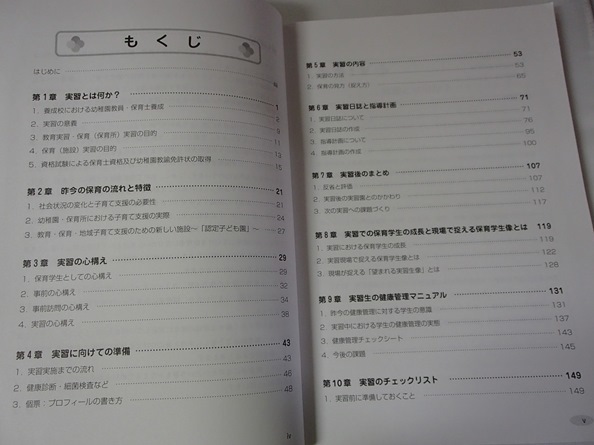 もくじ
はじめに iii
第1章 実習とは何か? 1
1. 養成校における幼稚園教員・保育士養成 1
2. 実習の意義 9
3. 教育実習・保育（保育所）実習の目的 11
4. 保育（施設）実習の目的 13
5. 資格試験による保育士資格及び幼稚園教諭免許状の取得 15
第2章 昨今の保育の流れと特徴 21
1. 社会状況の変化と子育て支援の必要性 21
2. 幼稚園・保育所における子育て支援の実際 24
3. 教育・保育・地域子育て支援のための新しい施設〜「認定子ども園」〜 27
第3章 実習の心構え 29
1. 保育学生としての心構え 29
2. 事前の心構え 32
3. 事前訪問の心構え 34
4. 実習の心構え 38
第4章 実習に向けての準備 43
1. 実習実施までの流れ 43
2. 健康診断・細菌検査など 46
3. 個票：プロフィールの書き方 48
iv
第5章 実習の内容 53
1. 実習の方法 53
2. 保育の見方（捉え方） 65
第6章 実習日誌と指導計画 71
1. 実習日誌について 71
2. 実習日誌の作成 76
3. 指導計画について 95
4. 指導計画の作成 100
第7章 実習後のまとめ 107
1. 反省と評価 107
2. 実習後の実習園とのかかわり 112
3. 次の実習への課題づくり 117
第8章 実習での保育学生の成長と現場で捉える保育学生像とは 119
1. 実習における保育学生の成長 119
2. 実習現場で捉える保育学生像とは 122
3. 現場が捉える「望まれる実習生像」とは 128
第9章 実習生の健康管理マニュアル 131
1. 昨今の健康管理に対する学生の意識 131
2. 実習中における学生の健康管理の実態 137
3. 健康管理チェックシート 143
4. 今後の課題 145
第10章 実習のチェックリスト 149
1. 実習前に準備しておくこと 149
v